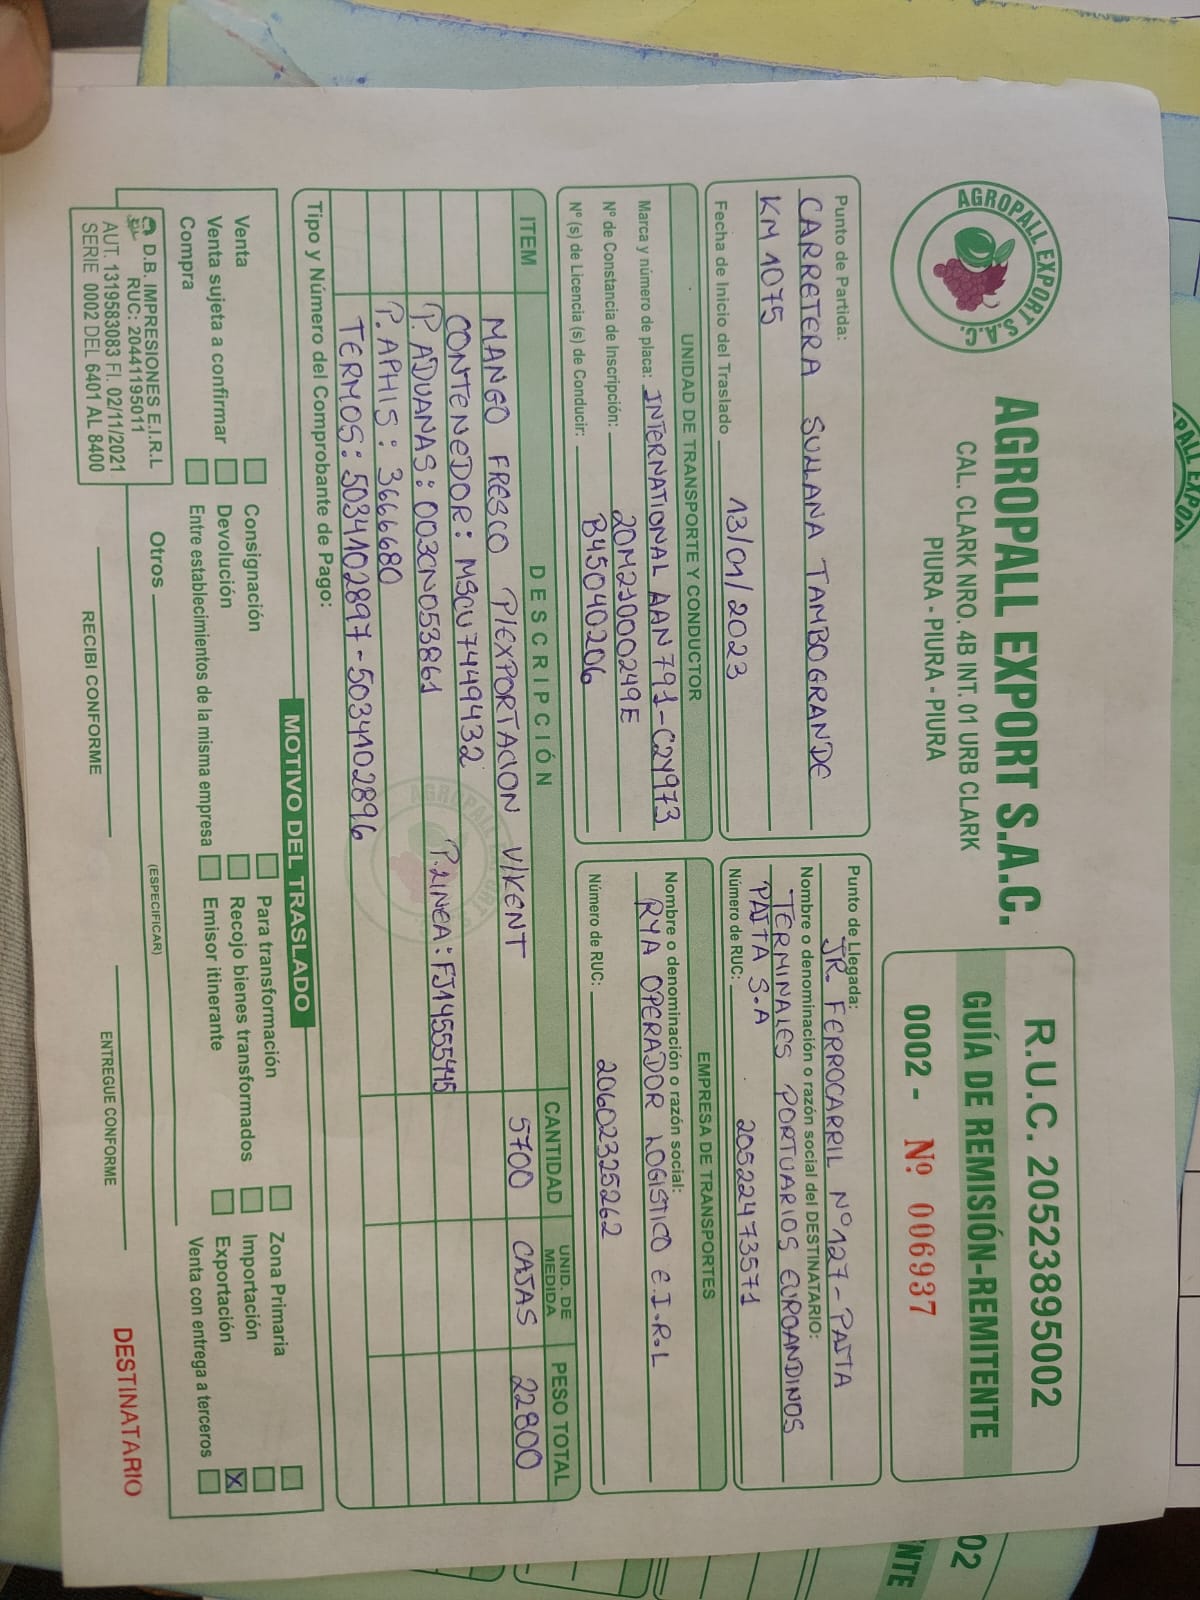 AGROPALL EXPORT S.A.C.
AGROPALL EXPORT S.A.C.
CAL. CLARK NRO. 4B INT. 01 URB CLARK
PIURA - PIURA - PIURA
R.U.C. 20523895002
GUÍA DE REMISIÓN-REMITENTE
0002 - Nº 006937
Punto de Partida:
CARRETERA SULLANA TAMBOGRANDE
KM 1075
Fecha de Inicio del Traslado 13/01/2023
Punto de Llegada:
JR. FERROCARRIL Nº 127 - PAITA
Nombre o denominación o razón social del DESTINATARIO:
TERMINALES PORTUARIOS EUROANDINOS
PAITA S.A
Número de RUC: 20522473571
UNIDAD DE TRANSPORTE Y CONDUCTOR
Marca y número de placa: INTERNATIONAL AAN791-C2Y973
Nº de Constancia de Inscripción: 20M21000249E
Nº (s) de Licencia (s) de Conducir: B45040206
EMPRESA DE TRANSPORTES
Nombre o denominación o razón social:
RYA OPERADOR LOGISTICO E.I.R.L
Número de RUC: 20602325262
ITEM DESCRIPCIÓN CANTIDAD UNID. DE MEDIDA PESO TOTAL
MANGO FRESCO P/EXPORTACION V/KENT 5700 CAJAS 22800
CONTENEDOR: MSCU7449432
P. ADUANAS: 003CN053861 P. LINEA: FJ14555445
P. APHIS: 3666680
TERMOS: 5034102897 - 5034102896
Tipo y Número del Comprobante de Pago:
MOTIVO DEL TRASLADO
Venta Consignación Para transformación Zona Primaria
Venta sujeta a confirmar Devolución Recojo bienes transformados Importación
Compra Entre establecimientos de la misma empresa Emisor itinerante Exportación X
Venta con entrega a terceros
Otros
(ESPECIFICAR)
D.B. IMPRESIONES E.I.R.L
RUC: 20441195011
AUT. 1319583083 FI. 02/11/2021
SERIE 0002 DEL 6401 AL 8400
RECIBI CONFORME
ENTREGUE CONFORME
DESTINATARIO
02
NTE